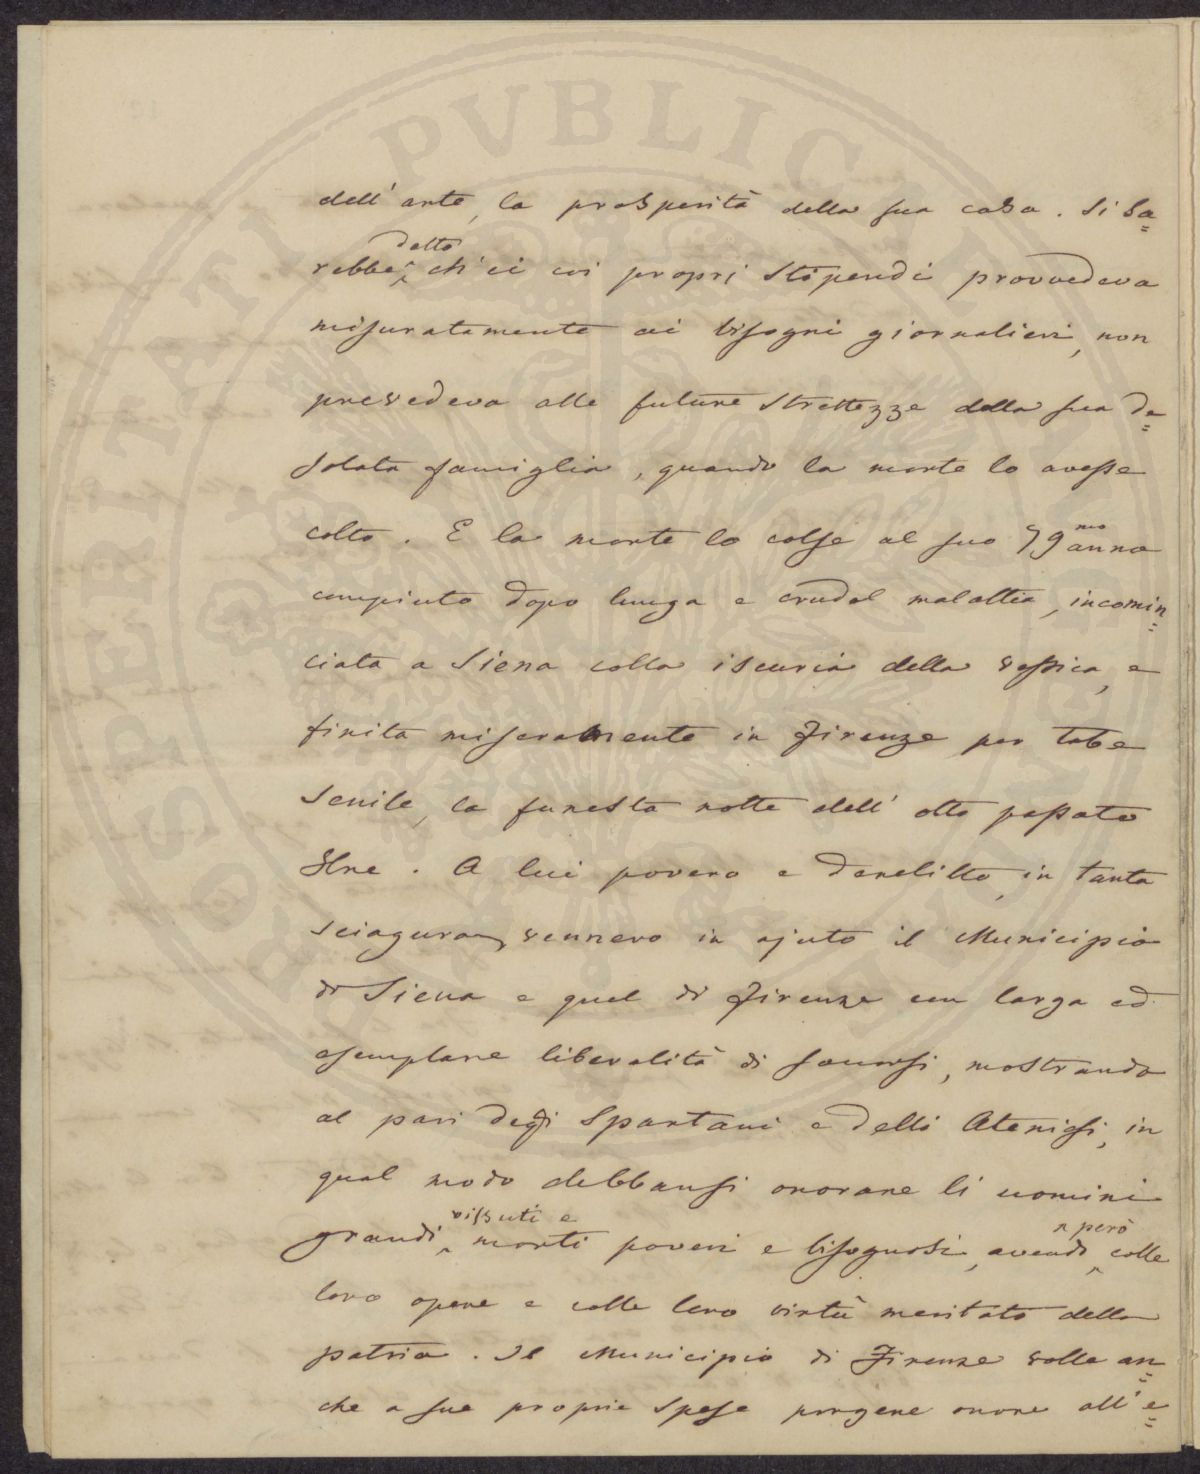 PROSPERITATI PVBLICAE AVGENDAE
dell'arte, la prosperità della sua casa. Si sa=
rebbe detto ch'ei coi proprj stipendi provvedeva
misuratamente ai bisogni giornalieri, non
prevedeva alle future strettezze della sua de=
solata famiglia, quando la morte lo avesse
colto. E la morte lo colse al suo 79mo anno
compiuto dopo lunga e crudel malattia, incomin=
ciata a Siena colla iscuria della vessica, e
finita miseramente in Firenze per tabe
senile, la funesta notte dell'otto passato
A lui povero e derelitto, in tanta
sciagura, vennero in ajuto il Municipio
di Siena e quel di Firenze con larga ed
esemplare liberalità di soccorsi, mostrando
al pari degli Spartani e delli Ateniesi, in
qual modo debbansi onorare li uomini
grandi vissuti e morti poveri e bisognosi, avendo però colle
loro opere e colle loro virtù meritato della
patria. Il Municipio di Firenze volle an=
che a sue proprie spese porgere onore all'e=